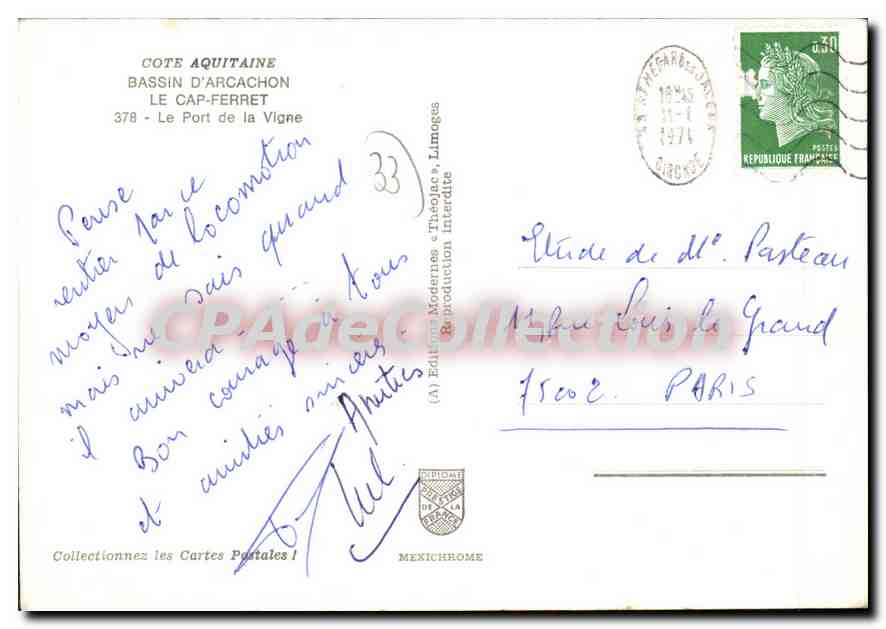 COTE AQUITAINE
BASSIN D'ARCACHON
LE CAP-FERRET
378 - Le Port de la Vigne
33
Pense
rentrer par ce
moyen de locomotion
mais ne sais quand
il arrivera....
Bon courage à tous
et amitiés sincères.
Amitiés
Collectionnez les Cartes Postales !
(A) Editions Modernes « Théojac », Limoges
Reproduction interdite
DIPLOME
PRESTIGE
DE LA
FRANCE
MEXICHROME
18H45
1974
GIRONDE
0,30
POSTES
REPUBLIQUE FRANÇAISE
Etude de Me Pasteau
rue Louis le Grand
75002 PARIS
CPAdeCollection